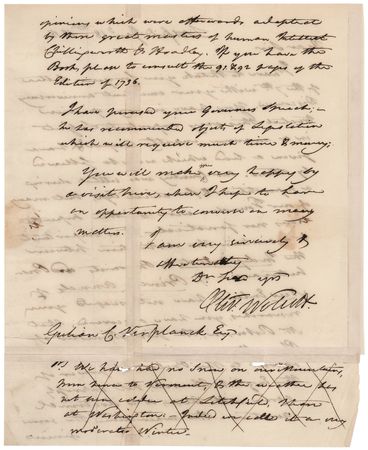 opinions which were afterwards adopted
by those great masters of human Intellect
Chillingworth & Hoadley. If you have the
Book, please to consult the 91 & 92 pages of the
Edition of 1736.
I have perused your Governors Speech;
he has recommended objects of legislation
which will require much time & money;
You will make me very happy by
a visit here, where I hope to have
an opportunity to converse on many
matters.
I am very sincerely &
affectionately
Dr Sir yrs
Oliv. Wolcott.
Gulian C. Verplanck Esq
P.S. We have had no Snow on our Mountains,
from hence to Vermont, & the weather has
not been colder at Litchfield, than
at Washington. Indeed we call it a very
moderate Winter.